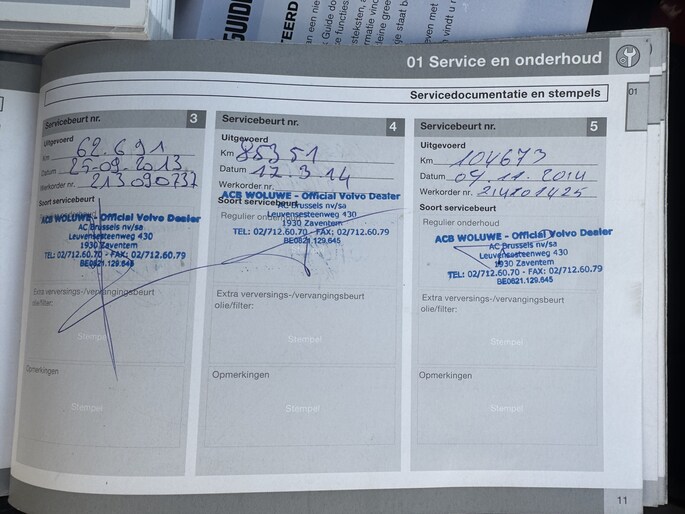 GUIDE
01 Service en onderhoud
Servicedocumentatie en stempels
01
Servicebeurt nr. 3
Uitgevoerd
Km 62.691
Datum 25-09.2013
Werkorder nr. 213090737
Soort servicebeurt
ACB WOLUWE - Official Volvo Dealer
AC Brussels nv/sa
Leuvensesteenweg 430
1930 Zaventem
TEL: 02/712.60.70 - FAX: 02/712.60.79
BE0821.129.645
Extra verversings-/vervangingsbeurt
olie/filter:
Stempel
Opmerkingen
Stempel
Servicebeurt nr. 4
Uitgevoerd
Km 85351
Datum 12.3.14
Werkorder nr.
ACB WOLUWE - Official Volvo Dealer
Soort servicebeurt
AC Brussels nv/sa
Leuvensesteenweg 430
Regulier onderhoud
1930 Zaventem
TEL: 02/712.60.70 - FAX: 02/712.60.79
BE0821.129.645
Extra verversings-/vervangingsbeurt
olie/filter:
Stempel
Opmerkingen
Stempel
Servicebeurt nr. 5
Uitgevoerd
Km 104673
Datum 04.11.2014
Werkorder nr. 214201425
Soort servicebeurt
Regulier onderhoud
ACB WOLUWE - Official Volvo Dealer
AC Brussels nv/sa
Leuvensesteenweg 430
1930 Zaventem
TEL: 02/712.60.70 - FAX: 02/712.60.79
BE0821.129.645
Extra verversings-/vervangingsbeurt
olie/filter:
Stempel
Opmerkingen
Stempel
11